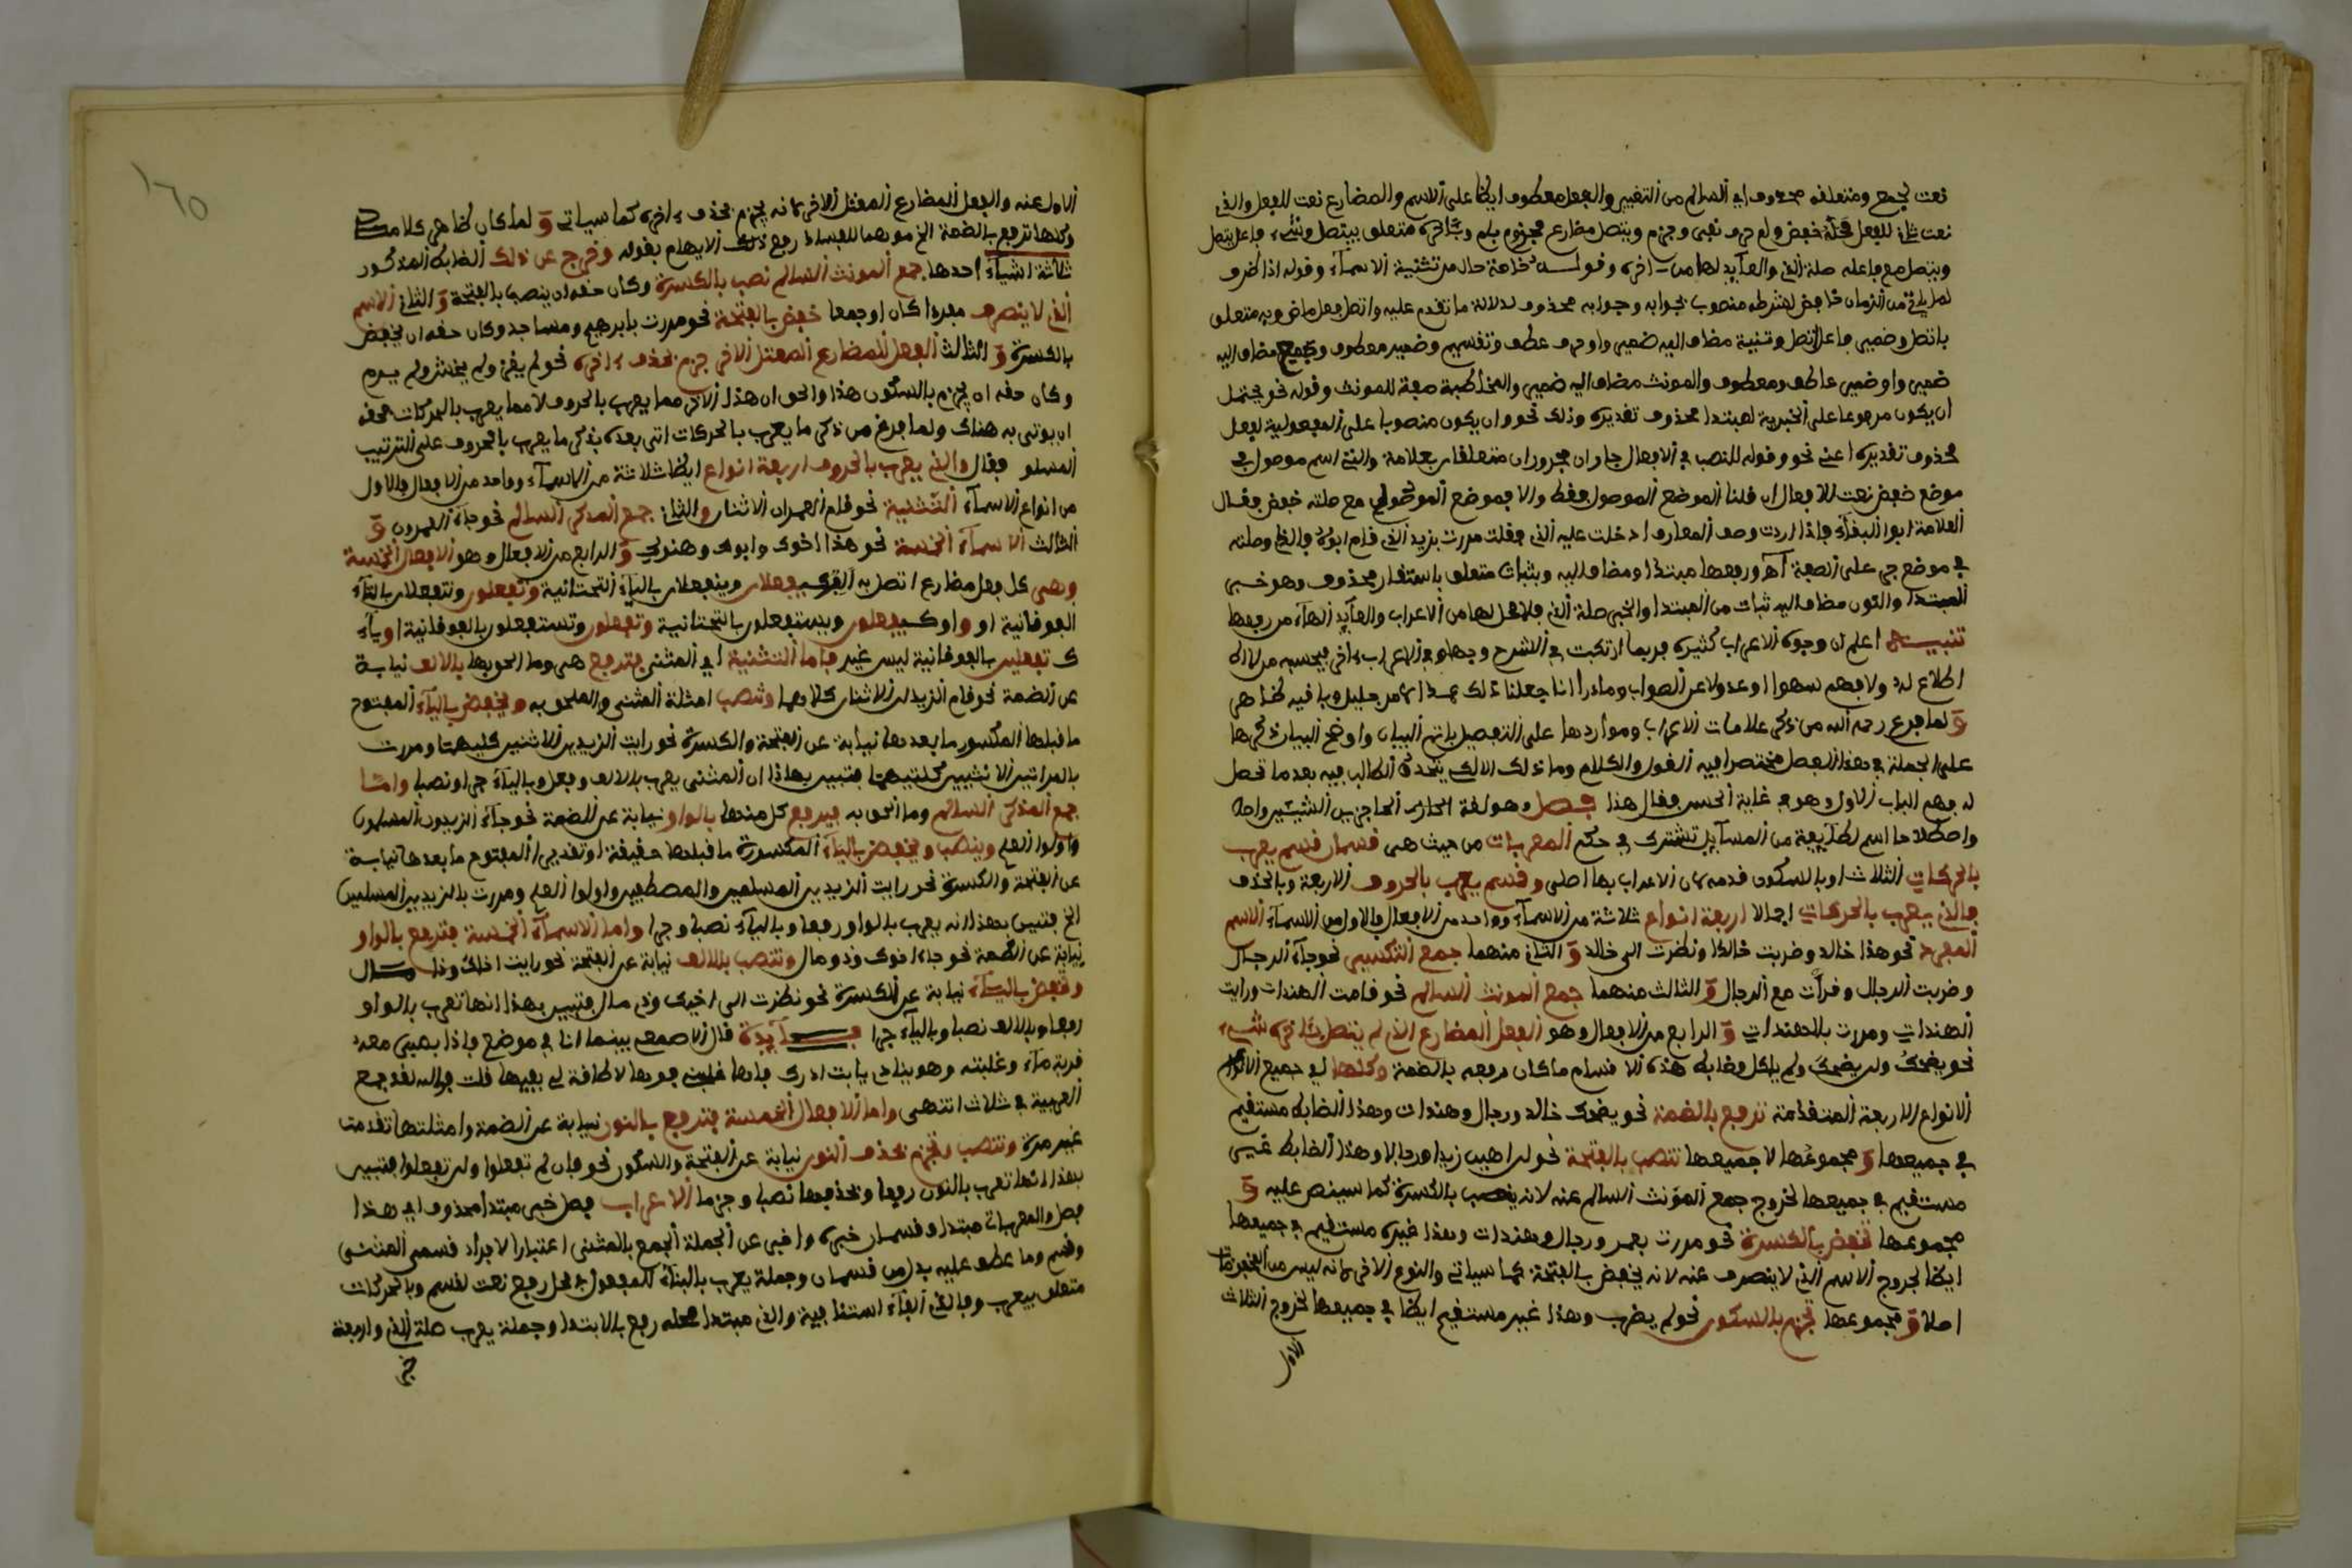 نعت لجمع ومتعلقه محذوف اي السالم من التغيير والفعل معطوف ايضا على الاسم والمضارع نعت للفعل والذي
نعت ثان للفعل محله خفض ولم حرف نفي وجزم ويتصل مضارع مجزوم بلم وبآخره متعلق بيتصل وشيء فاعل يتصل
ويتصل مع فاعله صلة الذي والعآيد لها من اخره وقوله خاصة حال من تثنية الاسمآء وقوله اذا ظرف
لما يلي من الزمان خافض لشرطه منصوب بجوابه وجوابه محذوف لدلالة ما تقدم عليه واتصل فعل ماض وبه متعلق
باتصل وضمير فاعل اتصل وتثنية مضاف اليه ضمير واو حرف عطف وتقسيم وضمير معطوف وجمع مضاف اليه
ضمير واو ضمير عاطف ومعطوف والمونث مضاف اليه ضمير والمخاطبة صفة للمونث وقوله نحو يحتمل
ان يكون مرفوعا على الخبرية لمبتدا محذوف تقديره وذلك نحو وان يكون منصوبا على المفعولية لفعل
محذوف تقديره اعني نحو وقوله للنصب في الافعال جاران مجروران متعلقان بعلامة والتي اسم موصول في
موضع خفض نعت للافعال ان قلنا الموضع الموصول فقط والا فموضع الموصول مع صلته خفض فقال
العلامة ابوا البقآء فاذا اردت وصف المعارف ادخلت عليه الذي فقلت مررت بزيد الذي قام ابوه فالذي وصلته
في موضع جر على الصفة اه ورفعها مبتدا ومضاف اليه وبثبات متعلق باستقرار محذوف وهو خبر
المبتدا والنون مضاف اليه ثبات من المبتدا والخبر صلة التي فلا محل لها من الاعراب والعآيد الهآء من رفعها
تنبيه اعلم ان وجوه الاعراب كثيرة فربما ارتكبت في الشرح وجها وفي الاعراب اخر فيحسبه من لا
اطلاع له ولا فهم سهوا او عدولا عن الصواب وما درا انا جعلنا ذلك عمدا لامر جليل وبا فيه ظاهر
و لما فرغ رحمه الله من ذكر علامات الاعراب ومواردها على التفصيل باتم البيان واوضح البيان ذكرها
على الجملة في هذا الفصل مختصرا فيه القول والكلام وما ذلك الا لكي يتحدق الطالب فيه بعد ما تحصل
له فهم الباب الاول وهو في غاية الحسن فقال هذا فصل وهو لغة الحاجز بين الشيئين
واصطلاحا اسم لطآيفة من المسآيل تشترك في حكم المعربات من حيث هي قسمان قسم يعرب
بالحركات الثلاث او بالسكون قدمه لان الاعراب بها اصلي وقسم يعرب بالحروف الاربعة وبالحذف
فالذي يعرب بالحركات اجمالا اربعة انواع ثلاثة من الاسمآء وواحد من الافعال فالاول من الاسمآء الاسم
المفرد نحو هذا خالد وضربت خالدا ونظرت الى خالد و الثاني منهما جمع التكسير نحو جآء الرجال
وضربت الرجال وقرات مع الرجال و الثالث منهما جمع المونث السالم نحو قامت الهندات ورايت
الهندات ومررت بالهندات و الرابع من الافعال وهو الفعل المضارع الذي لم يتصل بآخره شيء
نحو يضحك ولن يضحك ولم وضابط هذه الاقسام ما كان رفعه بالضمة وكلها اي جميع
الانواع الاربعة المتقدمة ترفع بالضمة نحو يضحك خالد ورجال وهندات وهذا الضابط مستقيم
في جميعها و مجموعها لا جميعها تنصب بالفتحة نحو لن اهيب زيدا ورجالا وهذا الضابط غير
مستقيم في جميعها لخروج جمع المونث السالم عنه لانه ينصب بالكسرة كما سينص عليه و
مجموعها تخفض بالكسرة نحو مررت بعمر ورجال وهندات وهذا غير مستقيم في جميعها
ايضا لخروج الاسم الذي لا ينصرف عنه لانه يخفض بالفتحة كما سياتي والنوع الاخر لانه ليس من
اصلا و مجموعها تجزم بالسكون نحو لم يضرب وهذا غير مستقيم ايضا في جميعها لخروج الثلاث
الاول
١٦٥
الاول عنه والفعل المضارع المعتل الاخر لانه يجزم بحذف اخره كما سياتي و لما كان ظاهر كلامه
وكلها ترفع بالضمة الخ موهما للفساد رفع ذلك الايهام بقوله وخرج عن ذلك الضابط المذكور
ثلاثة اشيآء احدها جمع المونث السالم نصب بالكسرة وكان حقه ان ينصب بالفتحة و الثاني الاسم
الذي لا ينصرف مفردا كان او جمعا خفض بالفتحة نحو مررت بابرهيم ومساجد وكان حقه ان يخفض
بالكسرة و الثالث الفعل المضارع المعتل الاخر جزم بحذف اخره نحو لم يغز ولم يخش ولم يرم
وكان حقه ان يجزم بالسكون هذا والحق ان هذا الاخر مما يعرب بالحروف لا مما يعرب بالحركات فحقه
ان يوتى به هناك ولما فرغ من ذكر ما يعرب بالحركات اتى بعده بذكر ما يعرب بالحروف على الترتيب
فقال والذي يعرب بالحروف اربعة انواع ايضا ثلاثة من الاسمآء وواحد من الافعال فالاول
من انواع الاسمآء التثنية نحو قام العمران الاثنان والثاني جمع المذكر السالم نحو جآء العمرون و
الثالث الاسمآء الخمسة نحو هذا اخوك وابوك وهنوك و الرابع من الافعال وهو الافعال الخمسة
وهي كل فعل مضارع اتصل به الف كيفعلان وينفعلان باليآء التحتانية وتفعلان وتنفعلان بالتآء
الفوقانية او واو كيفعلون ويستفعلون بالتحتانية وتفعلون وتستفعلون بالفوقانية او يآء
كتفعلين بالفوقانية ليس غير فاما التثنية اي المثنى فترفع هي وما الحق بها بالالف نيابة
عن الضمة نحو قام الزيدان الاثنان كلاهما وتنصب امثلة المثنى والملحق به وتخفض باليآء المفتوح
ما قبلها المكسور ما بعدها نيابة عن الفتحة والكسرة نحو رايت الزيدين الاثنين كليهما ومررت
بالمراتين الاثنتين كلتيهما فتبين بهاذا ان المثنى يعرب بالالف رفعا وباليآء جرا ونصبا واما
جمع المذكر السالم وما الحق به فيرفع كل منهما بالواو نيابة عن الضمة نحو جآء الزيدون المسلمون
واولوا العلم وينصب ويخفض باليآء المكسورة ما قبلها حقيقة او تقديرا المفتوح ما بعدها نيابة
عن الفتحة والكسرة نحو رايت الزيدين المسلمين والمصطفين واولوا العلم ومررت بالزيدين المسلمين
الخ فتبين بهذا انه يعرب بالواو رفعا وباليآء نصبا وجرا واما الاسمآء الخمسة فترفع بالواو
نيابة عن الضمة نحو جاء اخوك وذو مال وتنصب بالالف نيابة عن الفتحة نحو رايت اخاك وذا مال
وتخفض باليآء نيابة عن الكسرة نحو نظرت الى اخيك وذي مال فتبين بهذا انها تعرب بالواو
رفعا وبالالف نصبا وباليآء جرا فآيدة قال الاصمعي بينما انا في موضع فاذا بصبي معه
قربة مآء وغلبته وهو ينادي يابت ادرك فاها غلبني فوها لا طاقة لي بفيها قلت فوالله لقد جمع
العربية في ثلاث انتهى واما الافعال الخمسة فترفع بالنون نيابة عن الضمة وامثلتها تقدمت
غير مرة وتنصب وتجزم بحذف النون نيابة عن الفتحة والسكون نحو فان لم تفعلوا ولن تفعلوا فتبين
بهذا انها تعرب بالنون رفعا وبحذفها نصبا وجزما الاعراب فصل خبر مبتدا محذوف اي هذا
فصل والمعربات مبتدا وقسمان خبره واخبر عن الجملة الجمع بالمثنى اعتبارا لافراد قسمي المثنى
وقسم وما عطف عليه بدل من قسمان وجملة يعرب بالبنآء للمفعول في محل رفع نعت لقسم وبالحركات
متعلق بيعرب وفالذي الفآء استئنافية والذي مبتدا محله رفع بالابتدا وجملة يعرب صلة الذي واربعة
خبر